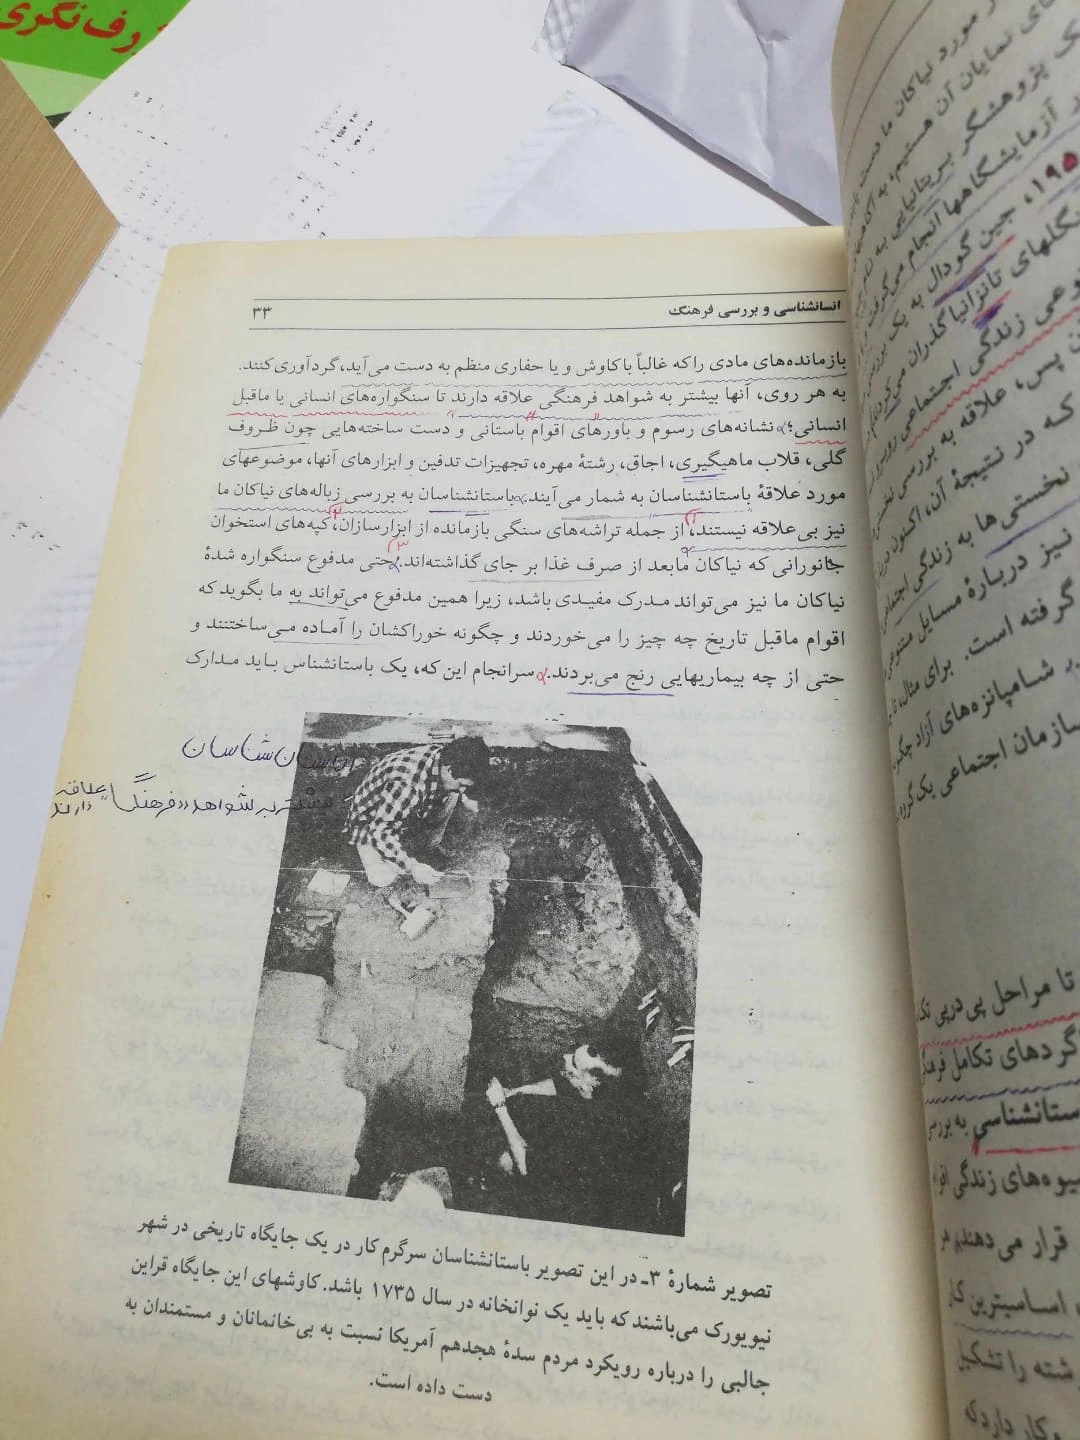 انسانشناسی و بررسی فرهنگ ۳۳
بازمانده‌های مادی را که غالباً با کاوش و یا حفاری منظم به دست می‌آید، گردآوری کنند.
به هر روی، آنها بیشتر به شواهد فرهنگی علاقه دارند تا سنگواره‌های انسانی یا ماقبل
انسانی؛ نشانه‌های رسوم و باورهای اقوام باستانی و دست ساخته‌هایی چون ظروف
گلی، قلاب ماهیگیری، اجاق، رشتهٔ مهره، تجهیزات تدفین و ابزارهای آنها، موضوعهای
مورد علاقهٔ باستانشناسان به شمار می‌آیند. باستانشناسان به بررسی زباله‌های نیاکان ما
نیز بی‌علاقه نیستند، از جمله تراشه‌های سنگی بازمانده از ابزارسازان، کپه‌های استخوان
جانورانی که نیاکان ما بعد از صرف غذا بر جای گذاشته‌اند. حتی مدفوع سنگواره شدهٔ
نیاکان ما نیز می‌تواند مدرک مفیدی باشد، زیرا همین مدفوع می‌تواند به ما بگوید که
اقوام ماقبل تاریخ چه چیز را می‌خوردند و چگونه خوراکشان را آماده می‌ساختند و
حتی از چه بیماریهایی رنج می‌بردند. سرانجام این که، یک باستانشناس باید مدارک
باستان‌شناسان
بیشتر به شواهد «فرهنگی» علاقه
دارند
تصویر شمارهٔ ۳ـ در این تصویر باستانشناسان سرگرم کار در یک جایگاه تاریخی در شهر
نیویورک می‌باشند که باید یک نوانخانه در سال ۱۷۳۵ باشد. کاوشهای این جایگاه قراین
جالبی را درباره رویکرد مردم سدهٔ هجدهم آمریکا نسبت به بی‌خانمانان و مستمندان به
دست داده است.
مورد نیاکان ما دست
های نمایان آن هستیم، به
پژوهشگر بریتانیایی به نام
آزمایشگاهها انجام می‌گرفت
جین گودال به یک بررسی
نگلهای تانزانیا گذران می‌کردند
زندگی اجتماعی روبرو
پس، علاقه به بررسی نخستی
که در نتیجهٔ آن، اکنون
نخستی‌ها به زندگی اجتماعی
نیز دربارهٔ مسایل متنوعی
گرفته است. برای مثال،
شامپانزه‌های آزاد چگونه
سازمان اجتماعی یک گروه
تا مراحل پی درپی
گردهای تکامل
ستانشناسی به بررسی
یوه‌های زندگی
قرار می‌دهند.
اساسیترین کار
شته را تشکیل
وکار دارد که